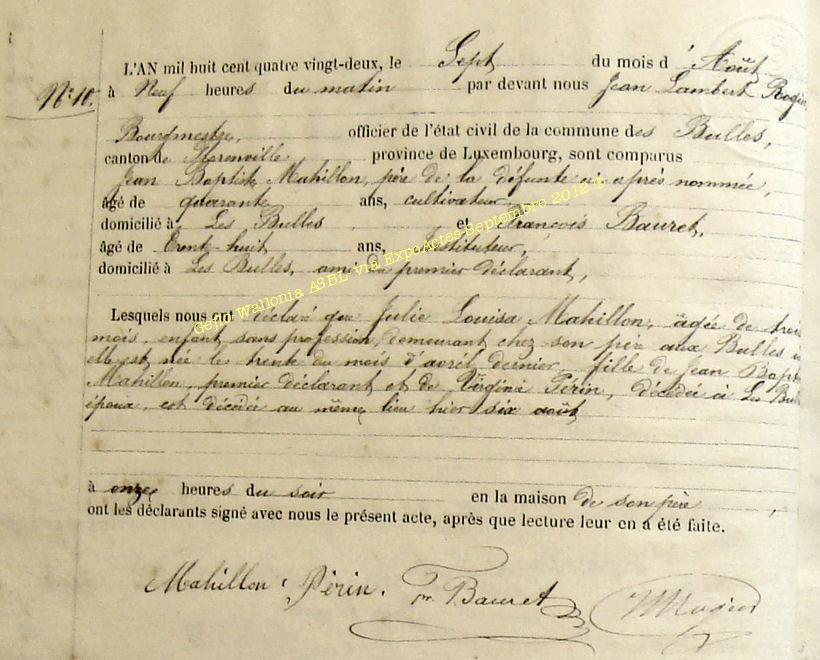 L'AN mil huit cent quatre vingt-deux, le Sept du mois d'Août
N° 10. à Neuf heures du matin par devant nous Jean Lambert
Bourgmestre, officier de l'état civil de la commune des Bulles,
canton de Florenville province de Luxembourg, sont comparus
Jean Baptiste Mahillon, père de la défunte ci après nommée,
âgé de quarante ans, cultivateur,
domicilié à Les Bulles et François Bauret,
âgé de trente-huit ans, Instituteur,
domicilié à Les Bulles, ami du premier déclarant,
Lesquels nous ont déclaré que Julie Louisa Mahillon, âgée de trois
mois, enfant sans profession, demeurant chez son père aux Bulles
elle est née le trente du mois d'avril dernier, fille de Jean Bapt
Mahillon, premier déclarant et de Virginie Périn, décédée à Les Bulles
époux, est décédée au même lieu hier six août
à onze heures du soir en la maison de son père,
ont les déclarants signé avec nous le présent acte, après que lecture leur en a été faite.
Mahillon Périn. Fr. Bauret
Gefid Wallonia ASBL via ExpoActes Septembre 2012